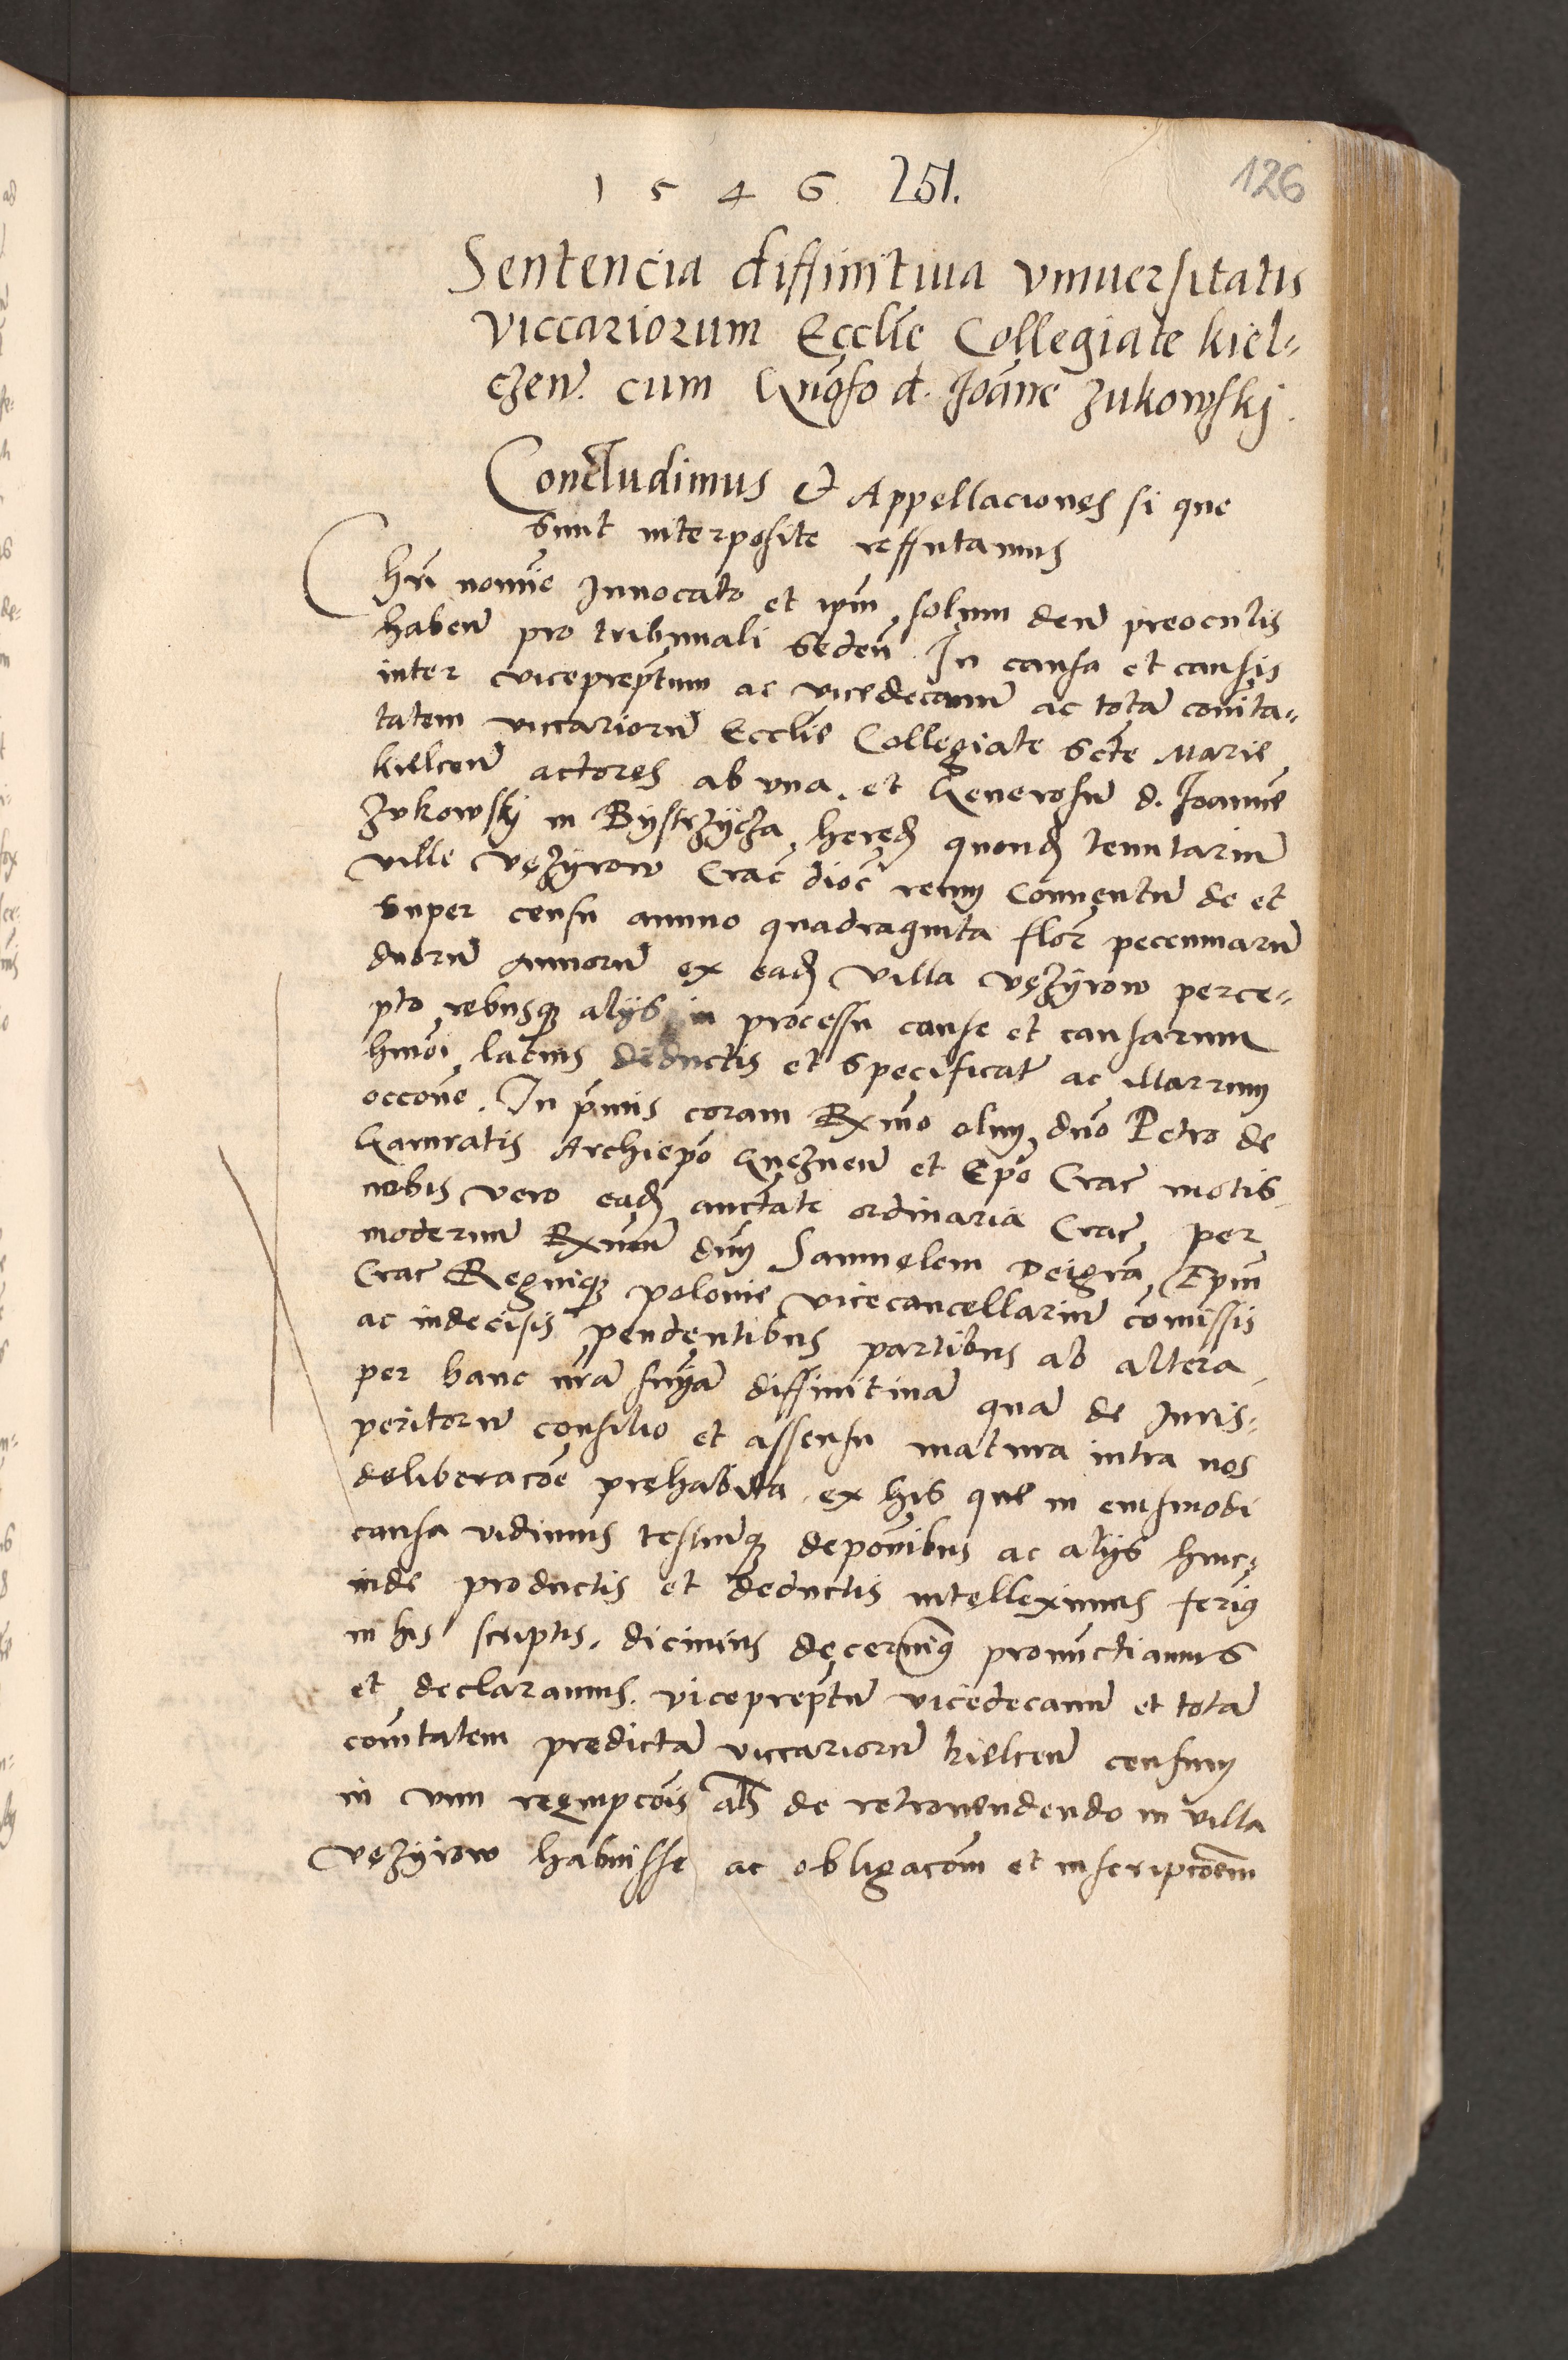 1546 251.
126
Sentencia diffinitiua vniuersitatis
viccariorum Ecclie Collegiate kiel-
czen̄. cum Gn̄oso d. Joān̄e Zukowskj.
Concludimus et Appellaciones si que
sunt interposite reffutamus
Chrī nomīe Innocato et ipm̄ solum deū preoculis
haben̄ pro tribunali seden̄. In causa et causis
inter viceprep̄tum ac vicedecanū ac totā com̄ita-
tatem viccariorū Ecclie Collegiate scte Marie
kielcen̄ actores ab vna. et Generosū d. Joannē
Zukowskj in Bystrzÿcza hered̄ quond̄ tenutariū
ville vęzÿrow Crac̄ dioc̄ reum conuentū de et
super censu annuo quadraginta flor̄ pecunniarū
duorū annorū ex ead̄ villa vęzÿrow perce-
pto rebusq̄ alÿs in processu cause et causarum
hmōi latius deductis et specificat̄ ac illarum
occōne. In prīmis coram Rx̄mo olim dn̄o Petro de
Gamratis Archiepō Gnęznen̄ et Epō Crac̄ motis
nobis vero ead̄ auct̄ate ordinaria Crac̄ per
modernū Rx̄mū dn̄m Samuelem Deigrā Epm̄
Crac̄ Regniq̄ polonie vicecancellariū com̄issis
ac indecisis pendentibus partibus ab altera
per hanc nr̄ā sn̄iā diffinitiuā quā de Juris-
peritorū consilio et assensu matura intra nos
deliberacōe prehabita ex his que in eiusmodi
causa vidimus testiūq̄ deponībus ac alÿs hinc
inde productis et deductis intelleximus ferim̄
in his scriptis. dicimus decernim̄ pronunctiamus
et declaramus. viceprep̄tū vicedecanū et totā
com̄itatem predictā viccariorū kielcen̄ censum
in vim reempcōis al̄s de retrouendendo in villa
vęzÿrow habuisse ac obligacōm et inscripcōem